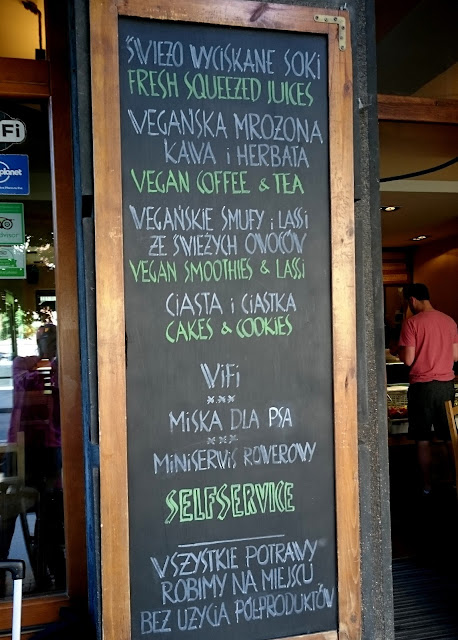 ŚWIEŻO WYCISKANE SOKI
FRESH SQUEEZED JUICES
WEGAŃSKA MROŻONA
KAWA i HERBATA
VEGAN COFFEE & TEA
WEGAŃSKIE SMUFY i LASSI
ZE ŚWIEŻYCH OWOCÓW
VEGAN SMOOTHIES & LASSI
CIASTA i CIASTKA
CAKES & COOKIES
WiFi
MISKA DLA PSA
MINISERWIS ROWEROWY
SELFSERVICE
WSZYSTKIE POTRAWY
ROBIMY NA MIEJSCU
BEZ UŻYCIA PÓŁPRODUKTÓW
Fi
planet